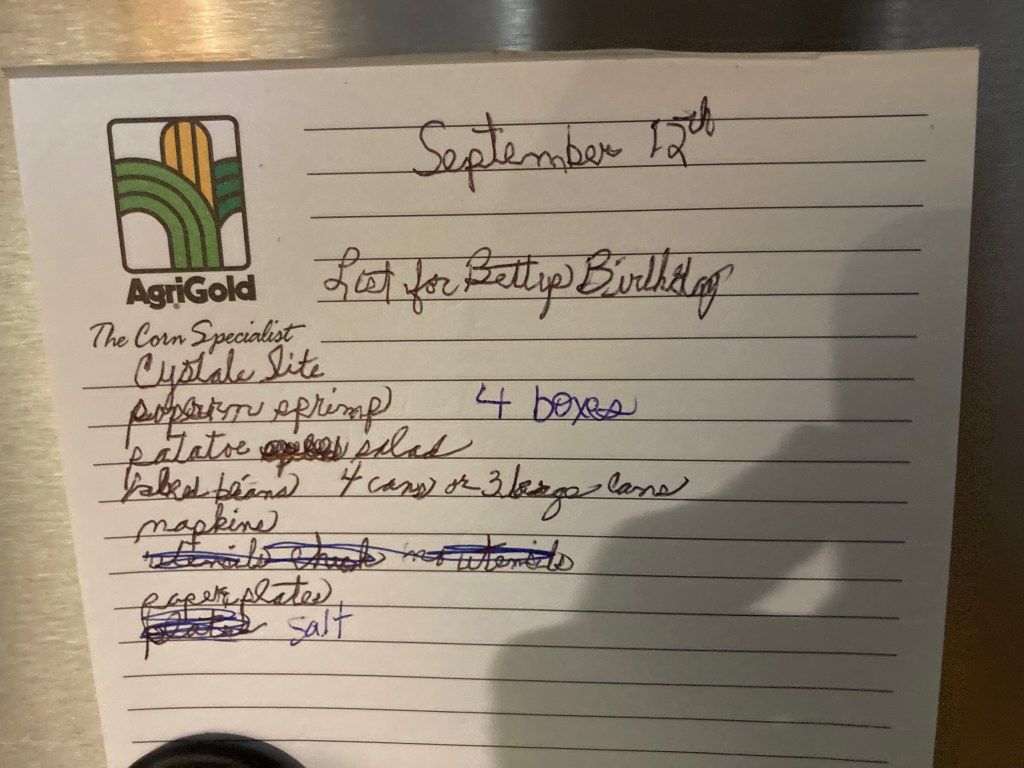 September 12th
List for Bettys Birthday
AgriGold
The Corn Specialist
Cystale lite
popcorn sprimp 4 boxes
patatoe salad
baked beans 4 cans or 3 large cans
napkins
utensils check no utensils
paper plates
plates salt